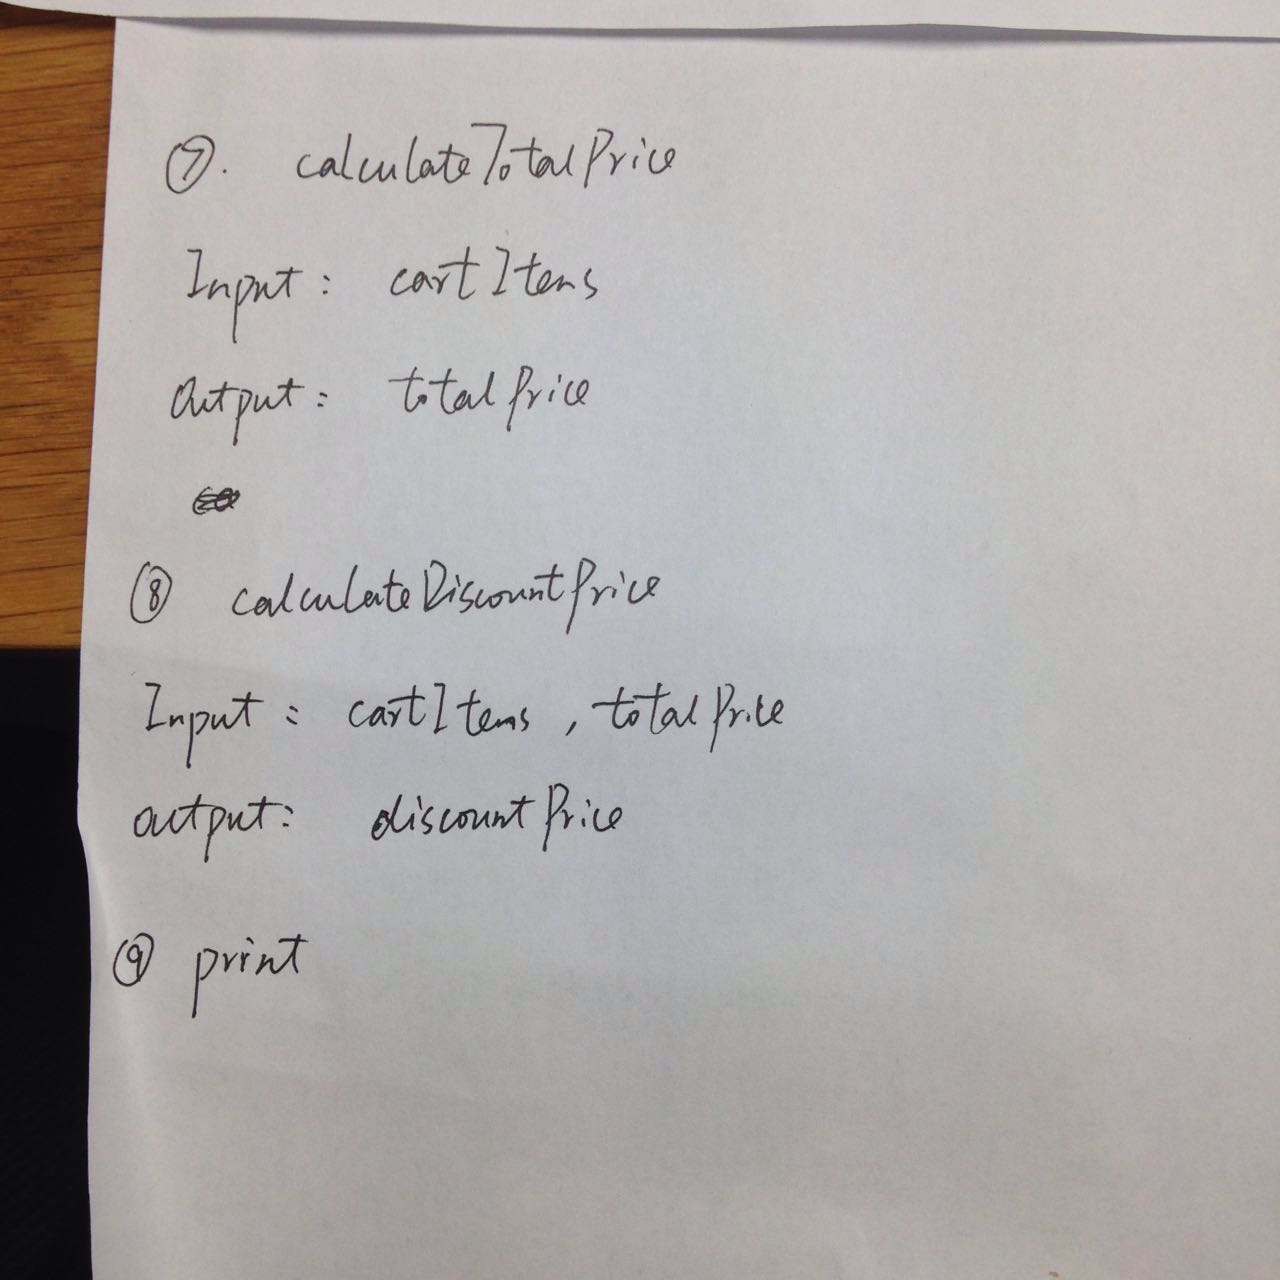 ⑦. calculateTotalPrice
Input: cartItems
Output: totalPrice
⑧ calculateDiscountPrice
Input: cartItems, totalPrice
output: discountPrice
⑨ print